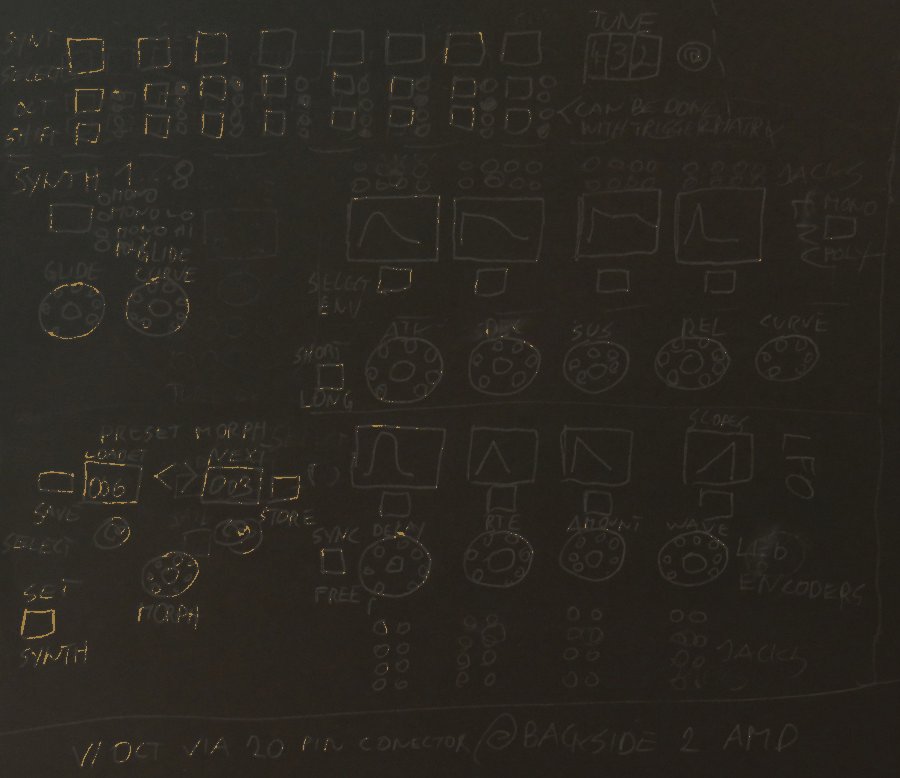 SYNT TUNE
SELECT 432
OUT CAN BE DONE
SHIFT WITH TRIGGERMATRIX
SYNTH 1-8 JACKS
MONO
MONO LO MONO
POLY
GLIDE GLIDE
CURVE SELECT
ENV
ATK DEC SUS REL CURVE
SHORT
LONG
PRESET MORPH SELECT SCOPES
NEXT LFO
006 < > 003
SAVE STORE
SELECT SYNC DELAY RTE AMOUNT WAVE
LED
FREE ENCODERS
SET MORPH
SYNTH JACKS
V/OCT VIA 20 PIN CONECTOR @BACKSIDE 2 AMD